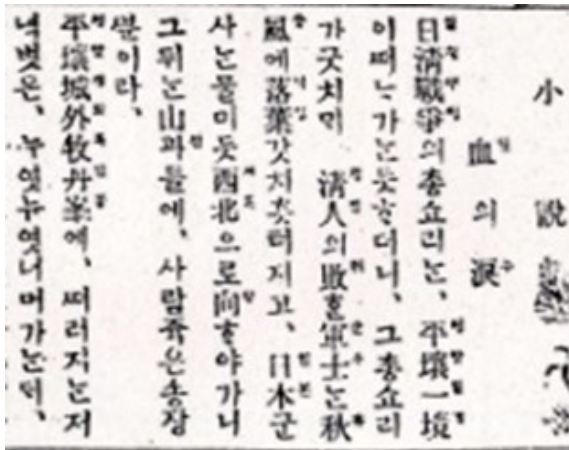 小說
血의淚
日淸戰爭의총쇼리는、平壤一境
이떠느가는듯ᄒᆞ더니、그총쇼리
가긋치미 淸人의敗ᄒᆞᆫ軍士는秋
風에落葉갓치훗터지고、日本군
사는물미듯西北으로向ᄒᆞ야가니
그뒤는山과들에、사람쥭은송장
뿐이라、
平壤城外牧丹峯에、떠러지는저
녁볏은、누엿누엿너머가는ᄃᆡ、